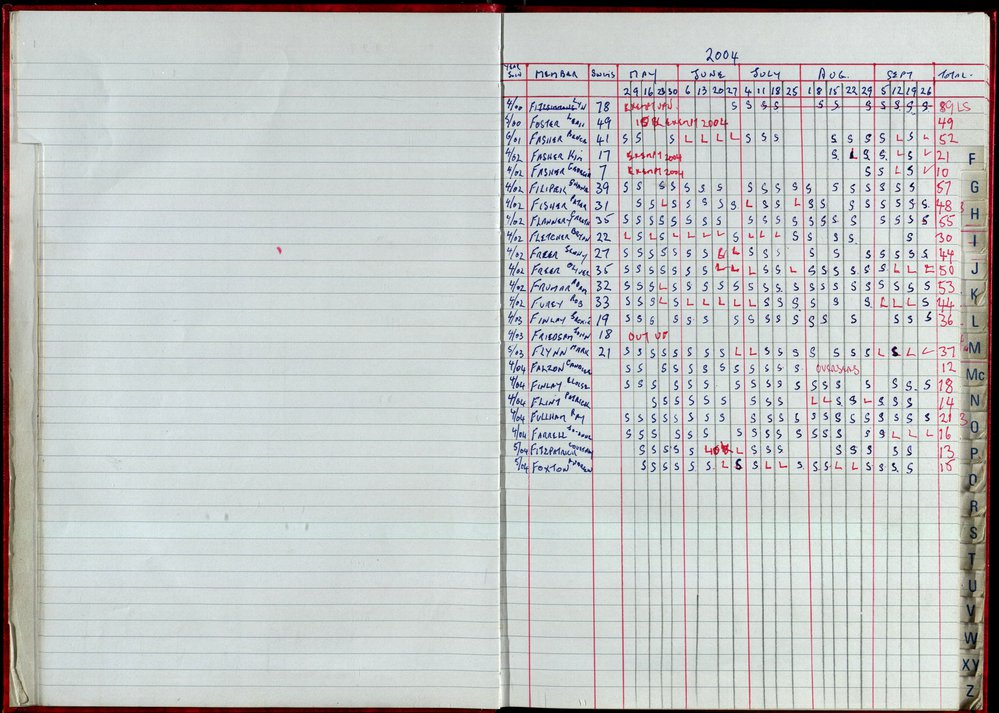 2004
YEAR SWIM MEMBER SWIMS MAY JUNE JULY AUG. SEPT TOTAL.
2 9 16 23 30 6 13 20 27 4 11 18 25 1 8 15 22 29 5 12 19 26
4/00 78 EXEMPT S S S S S S S S S S S 89 LS
5/00 FOSTER 49 EXEMPT 2004 49
6/01 FASHER BRUCE 41 S S S L L L L S S S S S S S L S L 52
4/02 FASHER KIM 17 EXEMPT 2004 S L S S L S L 21
4/02 FASHER GEORGIA 7 EXEMPT 2004 S S L S L 10
4/02 39 S S S S S S S S S S S S S S S S S S S S S 57
4/02 FISHER PETER 31 S S L S S S S S L S S L S S S S S S S S 48
4/02 FLANNERY 35 S S S S S S S S S S S S S S S S S S S S 55
4/02 FLETCHER 22 L S L S L L L L S L L L S S S S S 30
4/02 FREER 27 S S S S S S S L L S S S S S S S S S S S 44
4/02 FREER OLIVER 35 S S S S S S S L L L S S L S S S S S S L L L 50
4/02 FRUMAR ADAM 32 S S S L S S S S S S S S S S S S S S S S S S 53
4/02 FUREY ROB 33 S S S L S L L L L L S S S S S S S L L L S 44
4/03 FINLAY 19 S S S S S S S S S S S S S S S S S S 36
4/03 FRIEDSAM JOHN 18 OUT UF
5/03 FLYNN MARK 21 S S S S S S S S L L S S S S S S S S L S L L 37
4/04 FALZON CANDICE S S S S S S S S S S S S OVERSEAS 12
4/04 FINLAY S S S S S S S S S S S S S S S S S S 18
4/04 FLINT PATRICK S S S S S S S S S L L S S L S S S 14
4/04 FULLHAM RAY S S S S S S S S S S S S S S S S S S S S S 21
4/04 FARRELL S S S S S S S S S S S S S S S S L L L 16
5/04 FITZPATRICK S S S S S L S S S S S S S S 13
5/04 FOXTON ANDREW S S S S S S L S S L L S S S L L S S S 15
F
G
H
I
J
K
L
M
Mc
N
O
P
Q
R
S
T
U
V
W
XY
Z